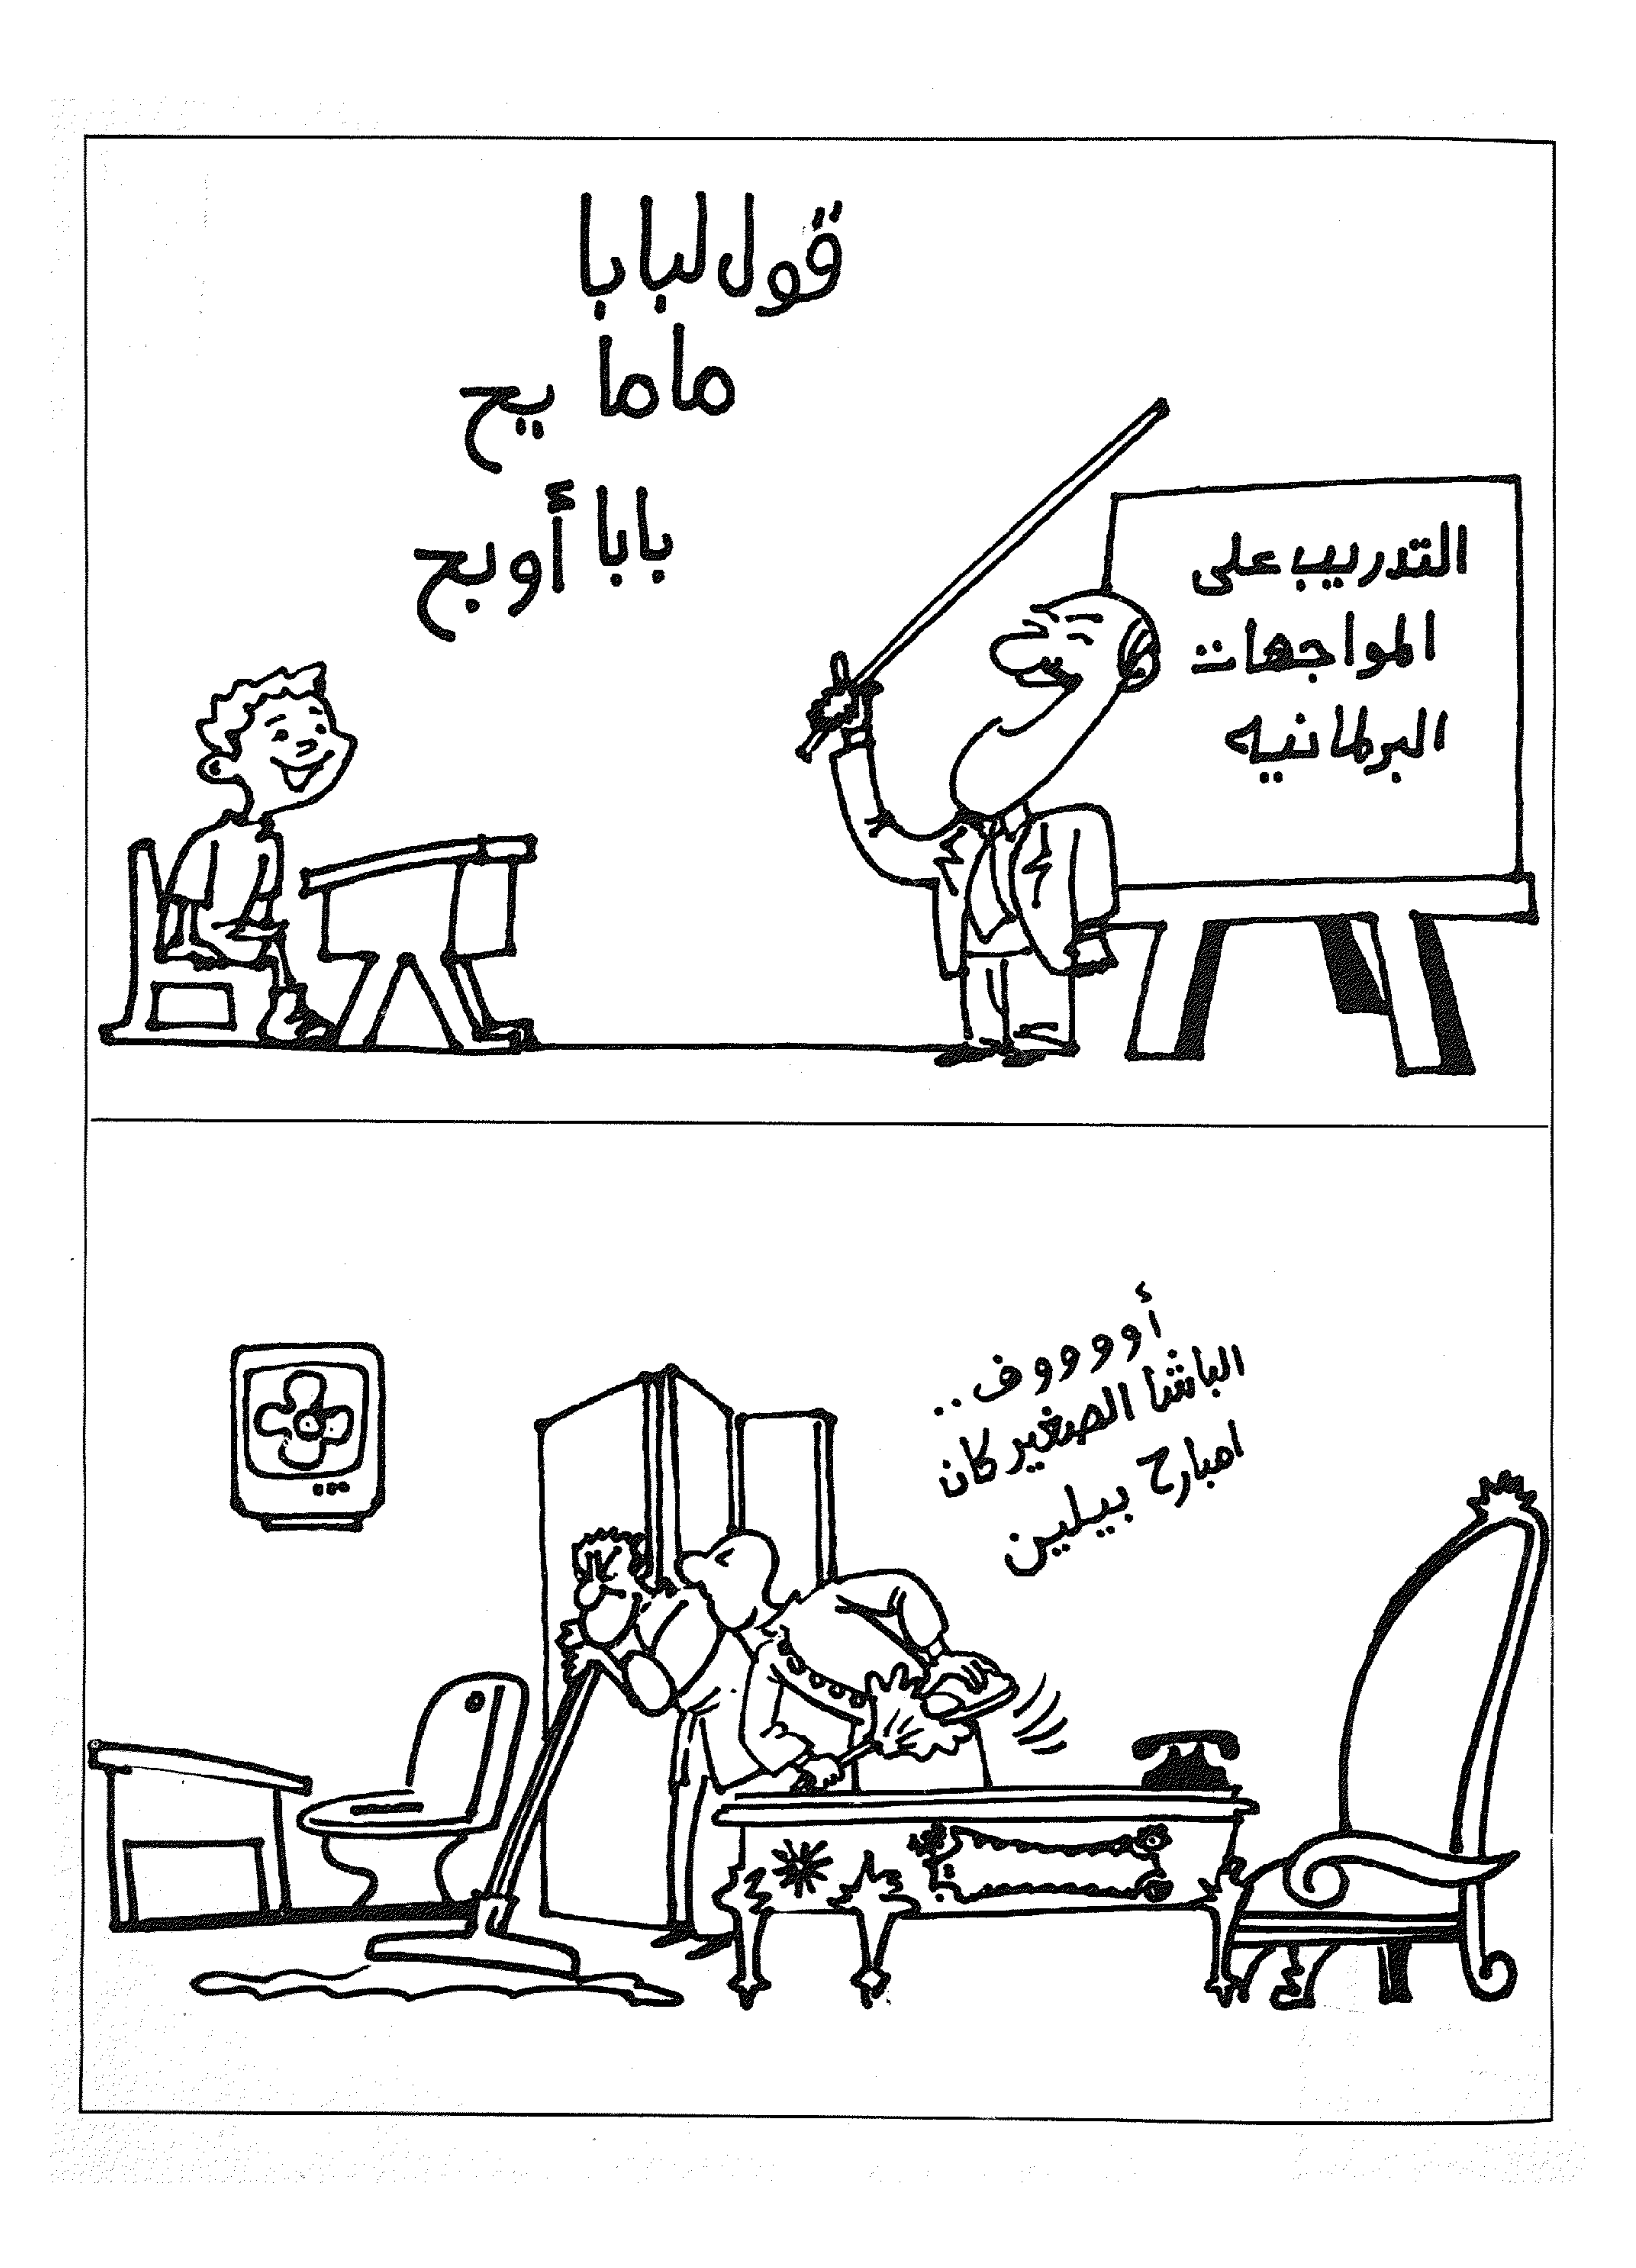 قول لبابا
ماما يح
بابا أوبح
التدريب على
المواجهات
البرلمانيه
أووووف..
الباشا الصغير كان
امبارح بيلين